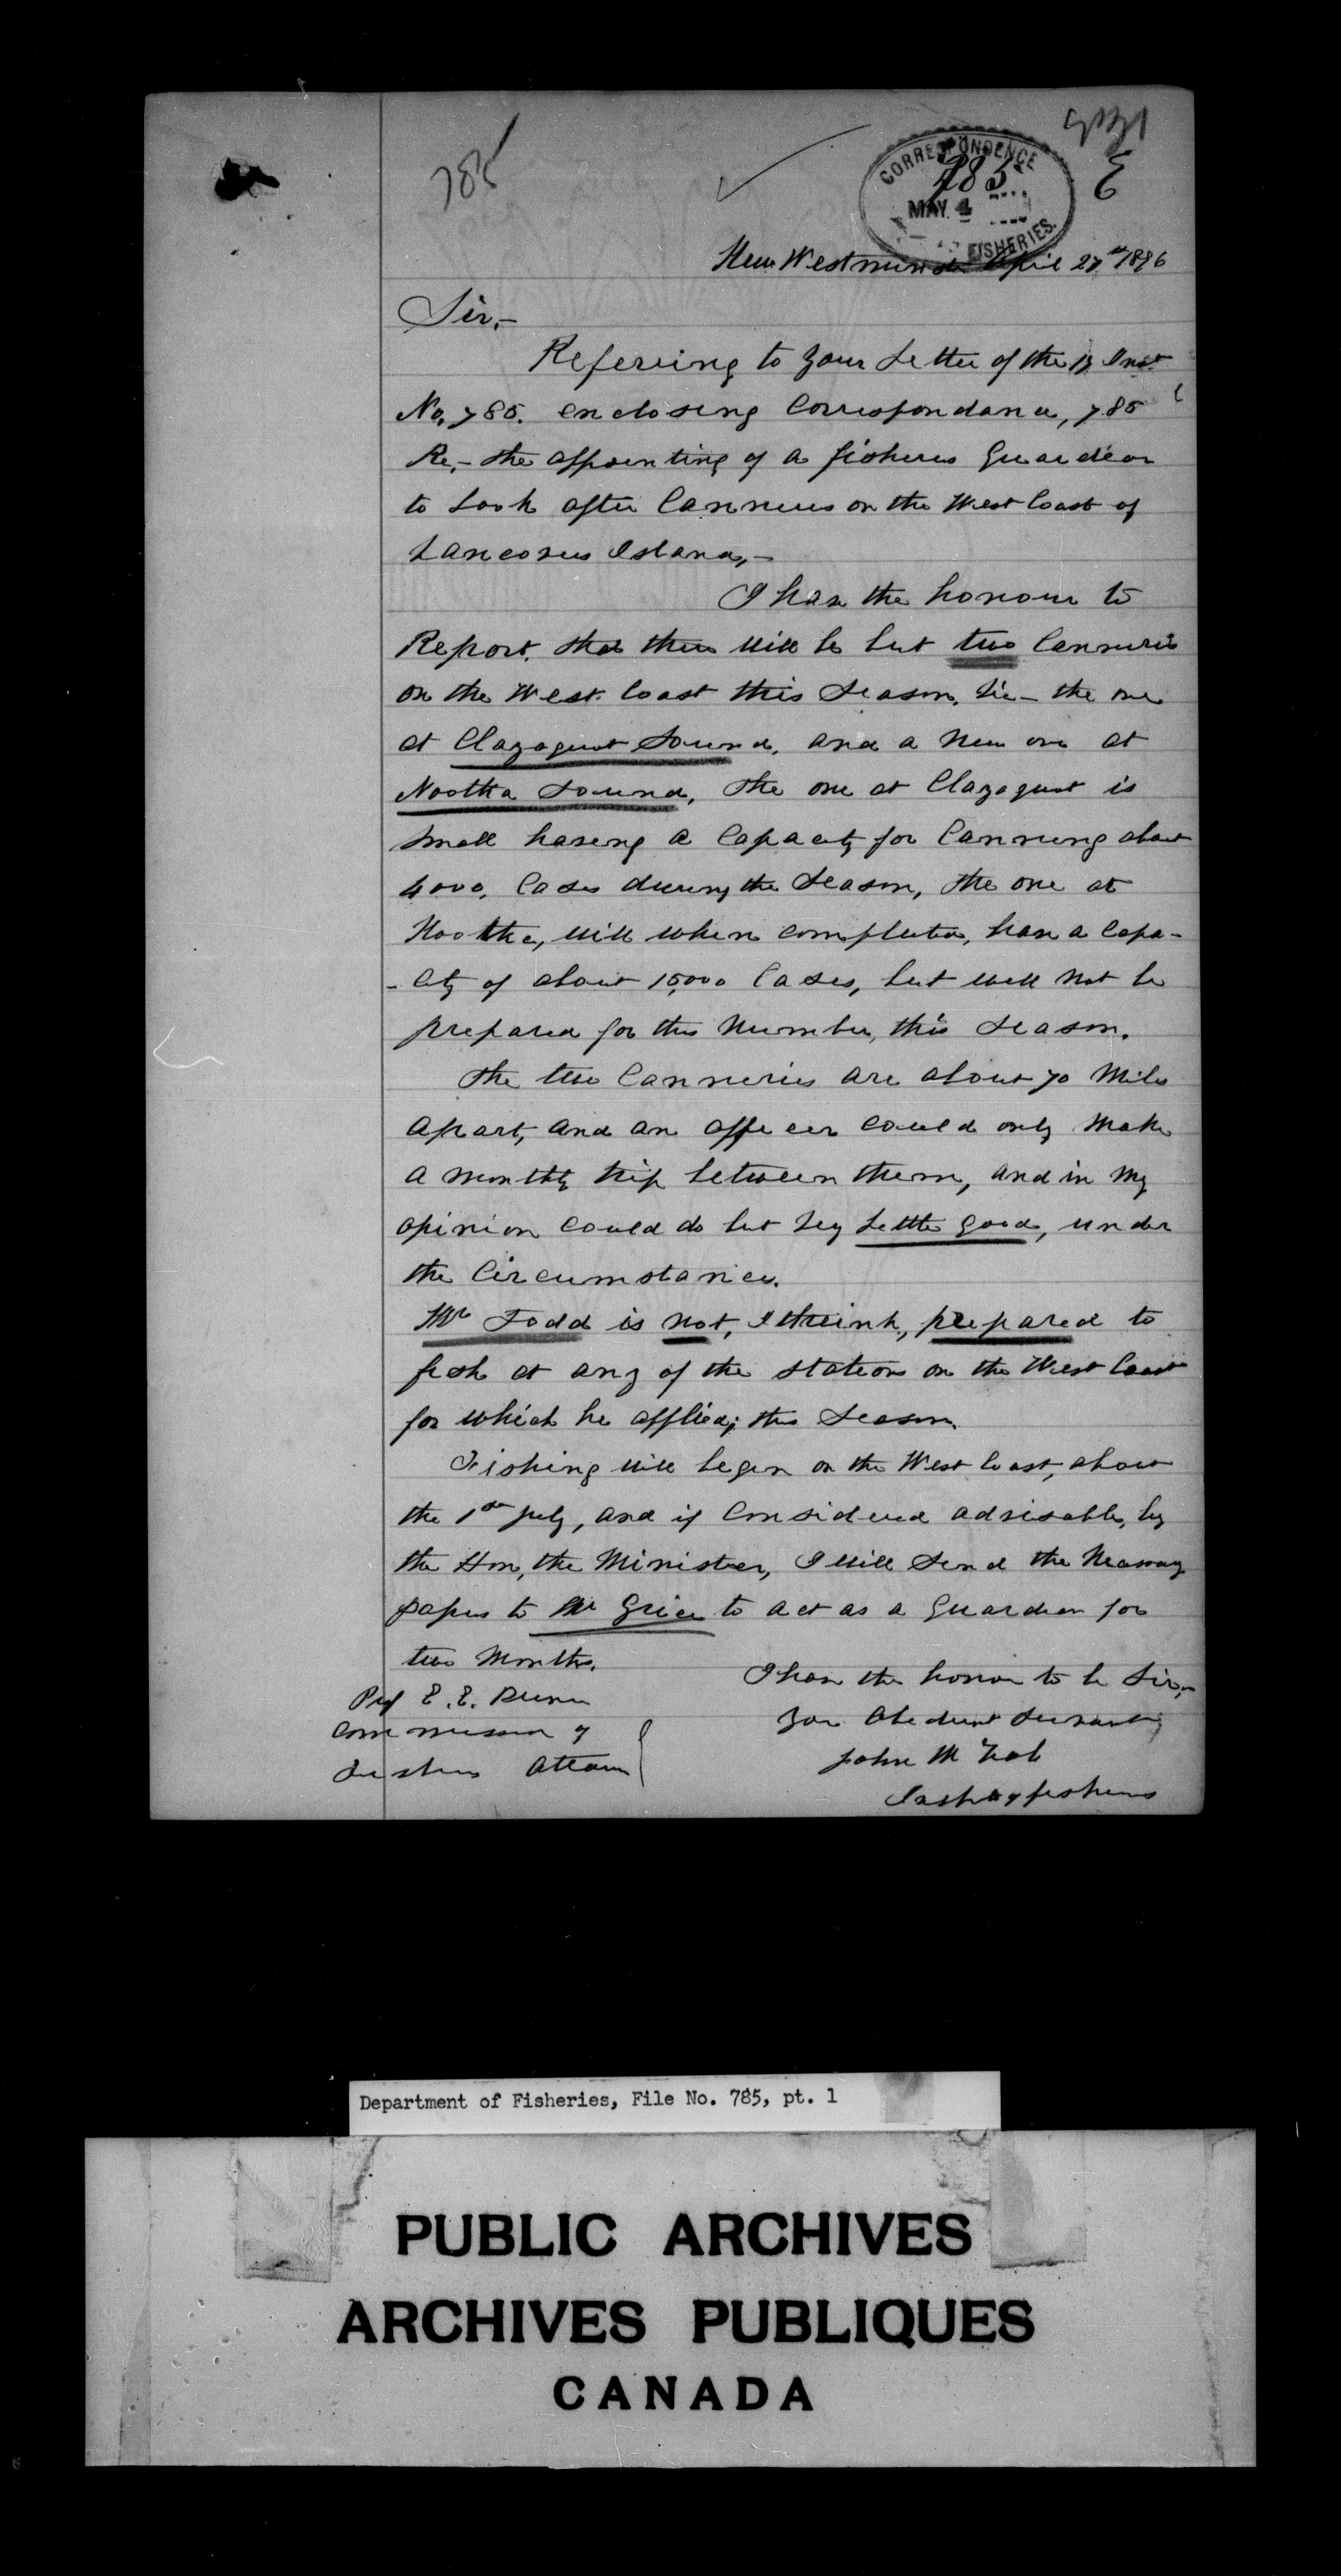 785
CORRESPONDENCE
785
MAY 4
FISHERIES.
E
New Westminster April 27th 1896
Sir,-
Referring to your Letter of the 17 Inst
No. 785. enclosing Correspondance, 785
Re,- the appointing of a fisheries Guardian
to Look after Canneries on the West Coast of
Vancover Island,-
I have the honour to
Report. that there will be but two Canneries
on the West Coast this Season, Vie- the one
at Clayoquot Sound, and a New one at
Nootka Sound, the one at Clayoquot is
Small having a Capacity for Canning about
4000, Cases during the Season, the one at
Nootka, will when completed, have a Capa-
-city of about 15,000 Cases, but will not be
prepared for this Number, this Season.
the two Canneries are about 70 Miles
apart, and an officer could only Make
a monthly trip between them, and in My
opinion could do but Very Little good, under
the Circumstances.
Mr Todd is not, I think, prepared to
fish at any of the stations on the West Coast
for which he applied; this Season.
Fishing will begin on the West Coast, about
the 1st July, and if Considered advisable, by
the Hon, the Minister, I will Send the Necessary
papers to Mr Grice to act as a Guardian for
two Months.
I have the honor to be Sir,-
Your Obedient Servant
John McNab
Insp of fisheries
Prof E. E. Prince
Commissioner of
Fisheries Ottawa
Department of Fisheries, File No. 785, pt. 1
PUBLIC ARCHIVES
ARCHIVES PUBLIQUES
CANADA